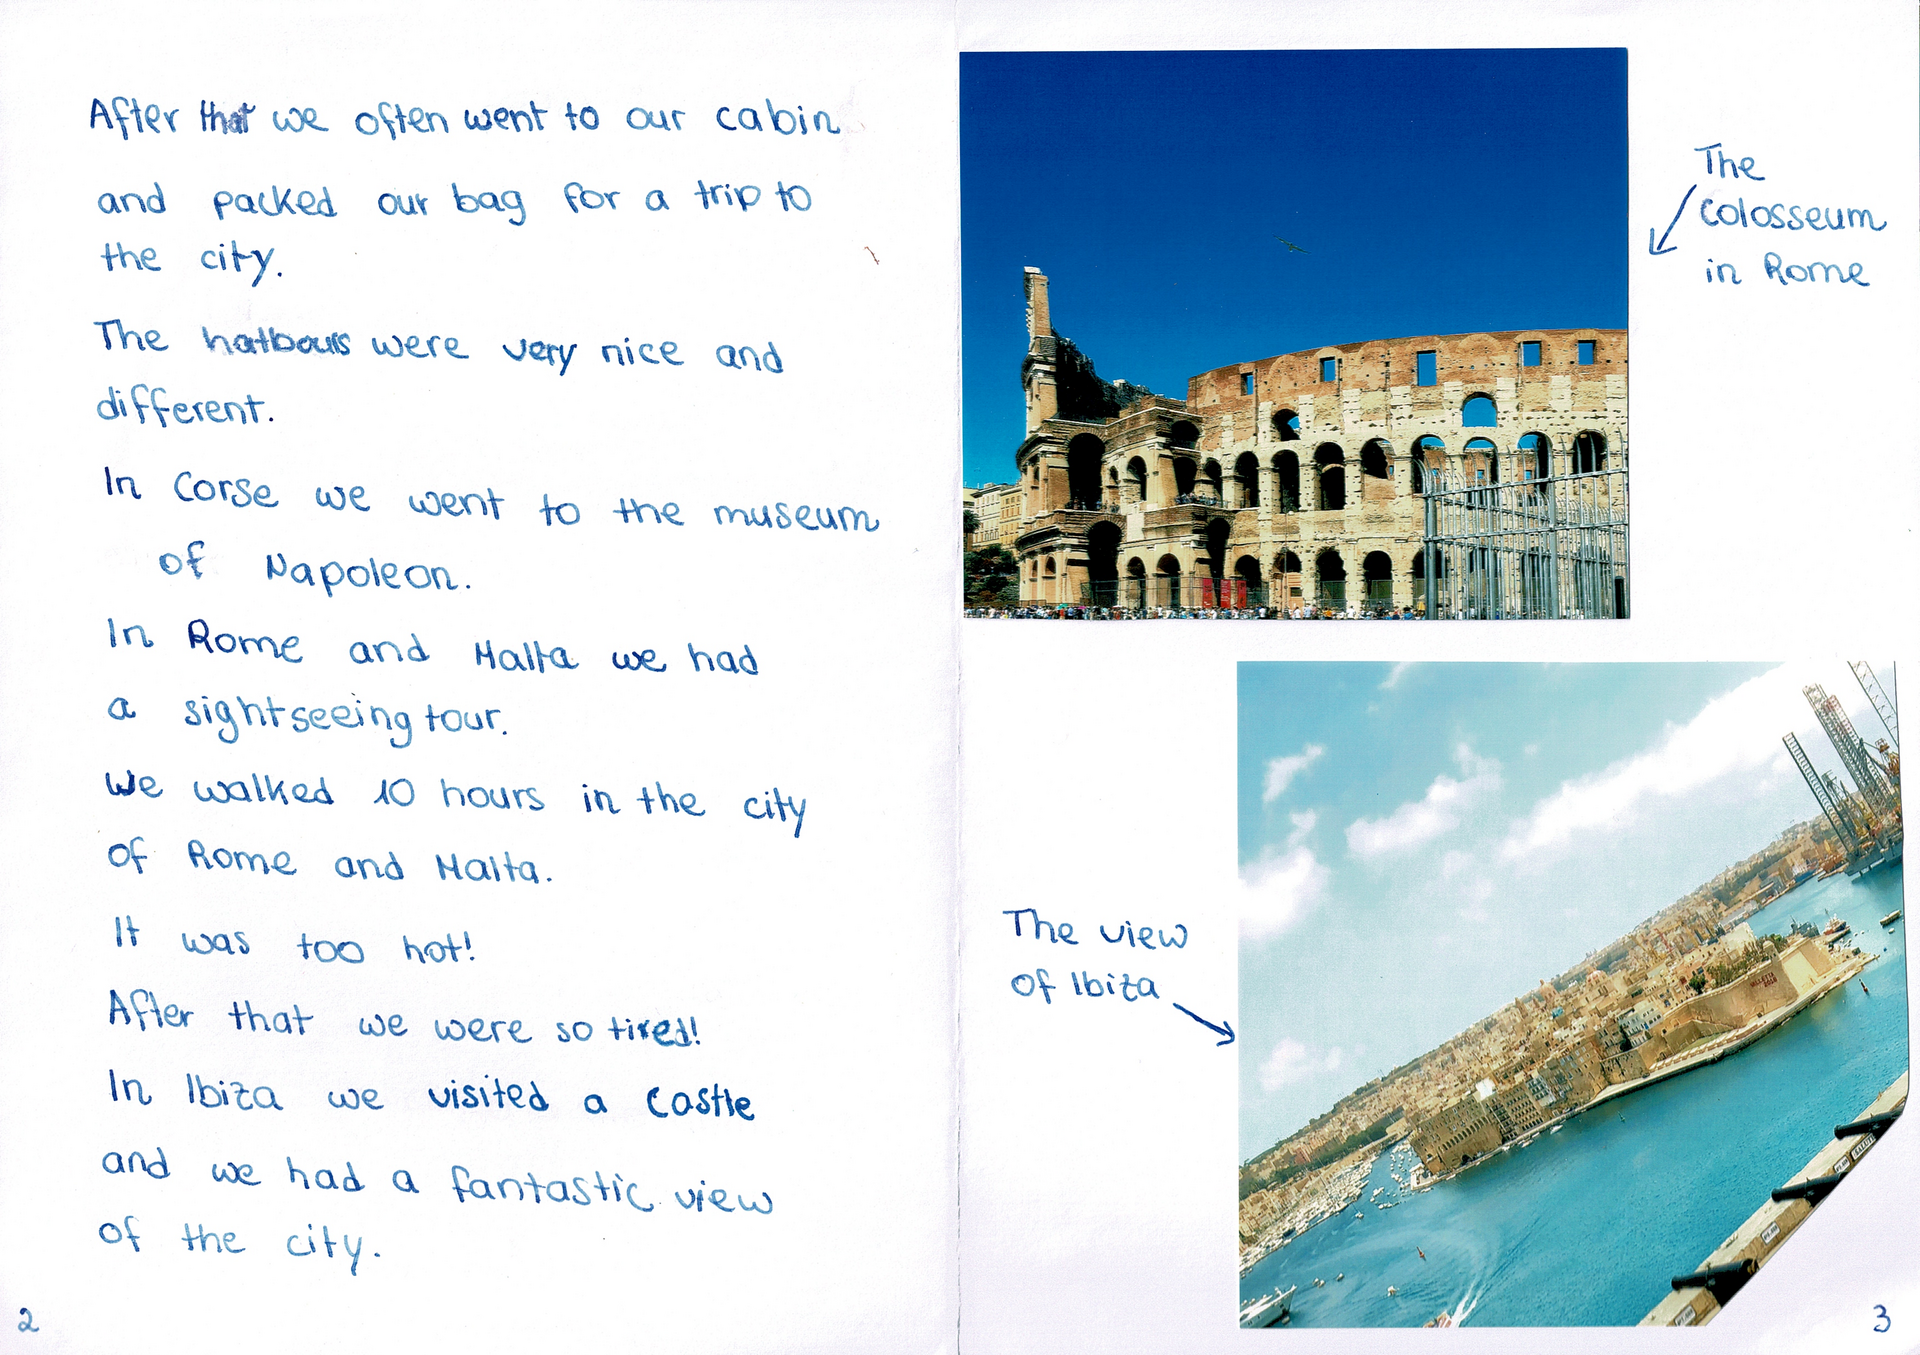 After that we often went to our cabin
and packed our bag for a trip to
the city.
The harbours were very nice and
different.
In Corse we went to the museum
of Napoleon.
In Rome and Malta we had
a sightseeing tour.
We walked 10 hours in the city
of Rome and Malta.
It was too hot!
After that we were so tired!
In Ibiza we visited a castle
and we had a fantastic view
of the city.
2
The
colosseum
in Rome
The view
of Ibiza
3